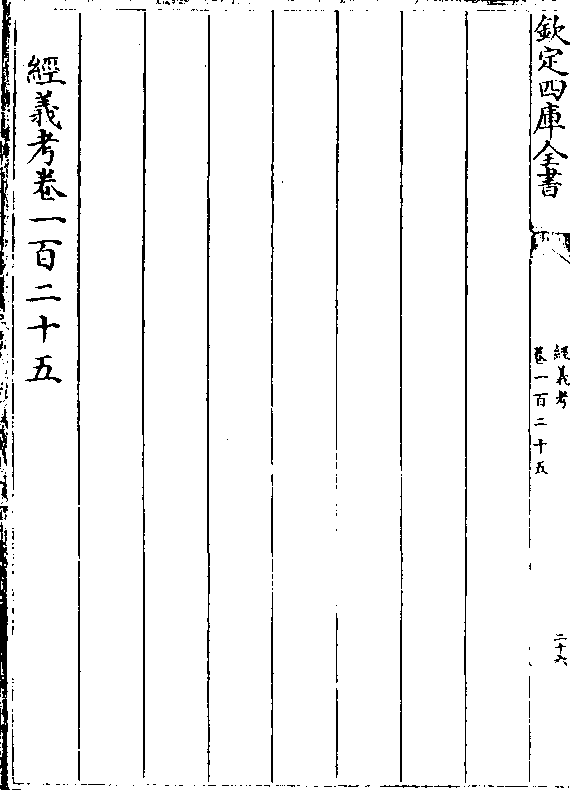 欽定四庫全書
經義考
卷一百二十五
二十六
經義考卷一百二十五